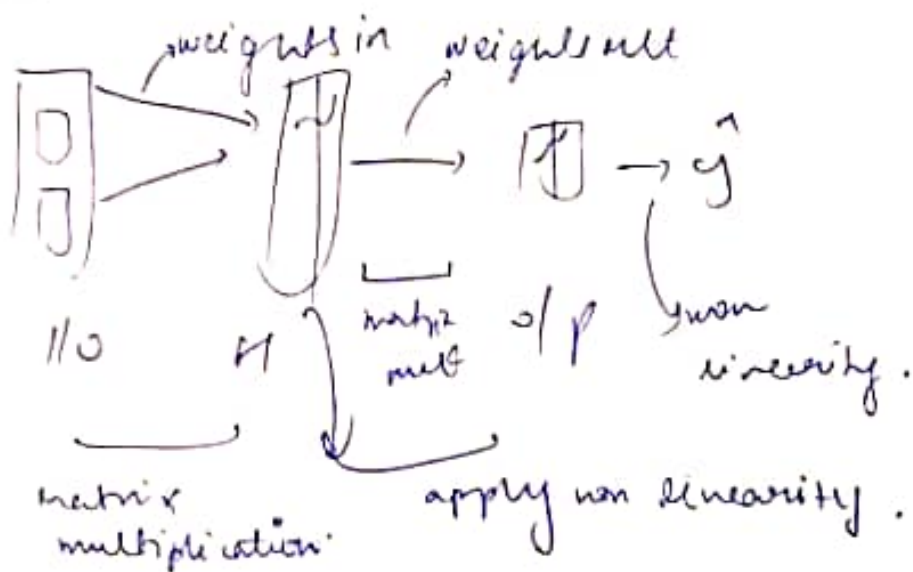 weights in weights out
ŷ
I/O H matrix mult o/p non linearity.
matrix multiplication. apply non linearity.